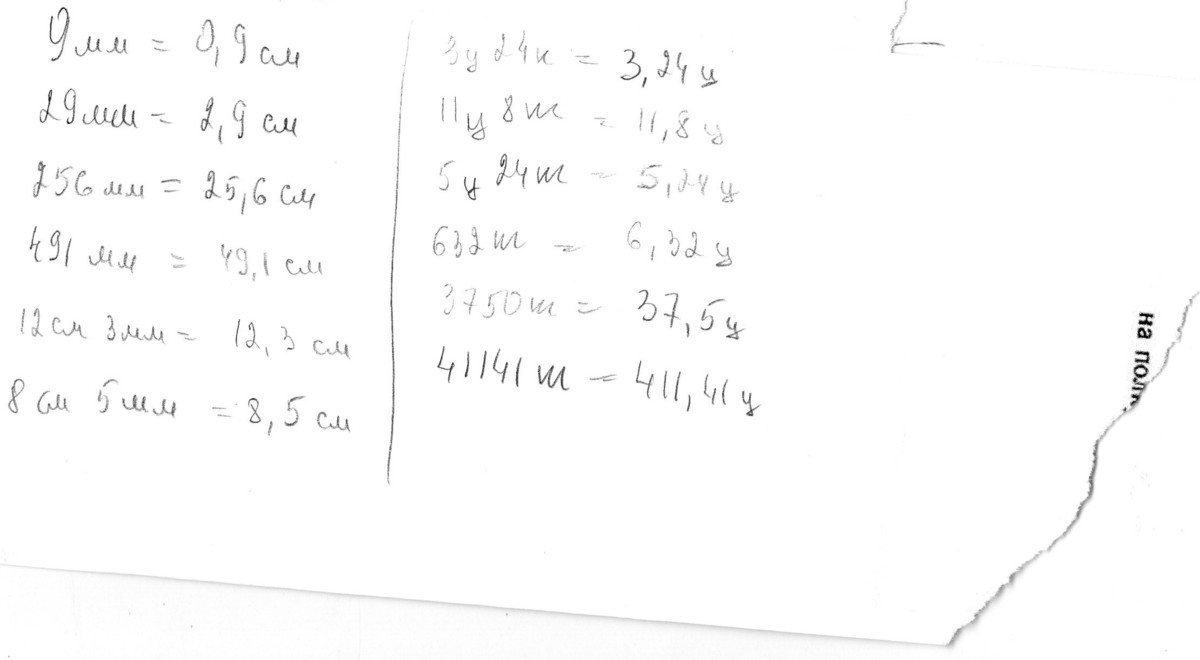 9мм = 0,9 см
29мм = 2,9 см
256 мм = 25,6 см
491 мм = 49,1 см
12см 3мм = 12,3 см
8 см 5мм = 8,5 см
3ц 24к = 3,24 ц
11ц 8т = 11,8 ц
5ц 24т = 5,24 ц
632т = 6,32 ц
3750т = 37,5 ц
41141т = 411,41 ц
на полк